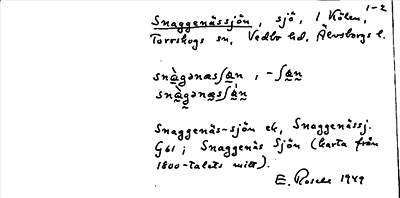 1-2
Snaggenässjön, sjö, i Kölen,
Torrskogs sn, Vedbo hd, Älvsborgs l.
snàgənæsʃan, -ʃan
snàgənæsʃan
Snaggenäs-sjön ek, Snaggenässj.
G61; Snaggenäs Sjön (karta från
1800-talets mitt).
E. 1949